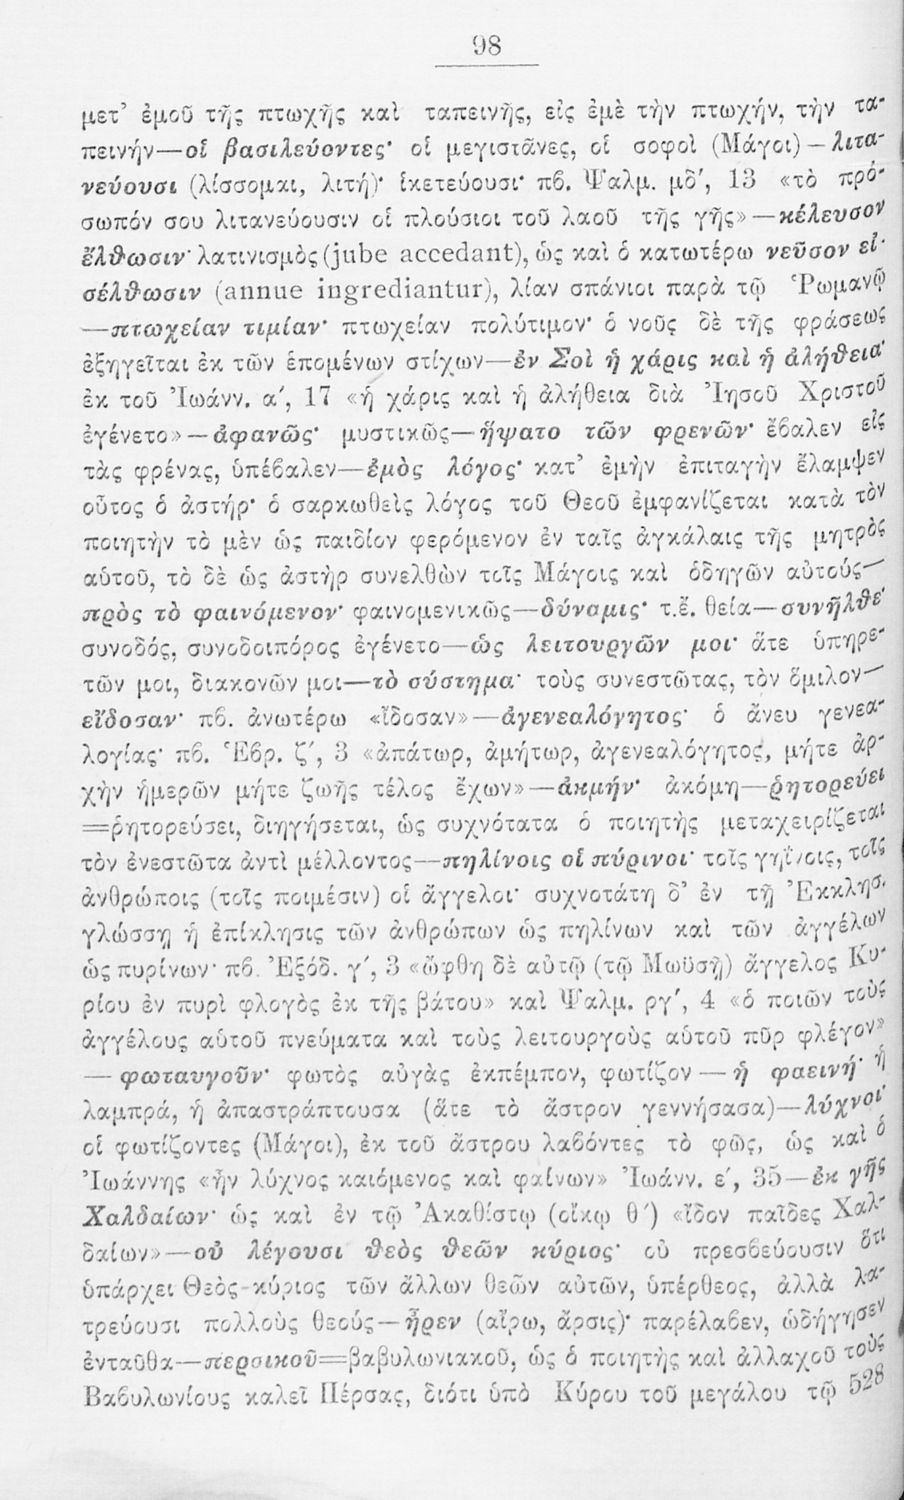 98
μετ’ ἐμοῦ τῆς πτωχῆς καὶ ταπεινῆς, εἰς ἐμὲ τὴν πτωχήν, τὴν τα-
πεινήν—οἱ βασιλεύοντες· οἱ μεγιστᾶνες, οἱ σοφοὶ (Μάγοι)—λιτα-
νεύουσι (λίσσομαι, λιτή)· ἱκετεύουσι· πβ. Ψαλμ. μδ΄, 13 «τὸ πρό-
σωπόν σου λιτανεύουσιν οἱ πλούσιοι τοῦ λαοῦ τῆς γῆς»—κέλευσον
ἔλθωσιν· λατινισμὸς (jube accedant), ὡς καὶ ὁ κατωτέρω νεῦσον εἰ-
σέλθωσιν (annue ingrediantur), λίαν σπάνιοι παρὰ τῷ Ῥωμανῷ
—πτωχείαν τιμίαν· πτωχείαν πολύτιμον· ὁ νοῦς δὲ τῆς φράσεως
ἐξηγεῖται ἐκ τῶν ἑπομένων στίχων—ἐν Σοὶ ἡ χάρις καὶ ἡ ἀλήθεια·
ἐκ τοῦ Ἰωάνν. α΄, 17 «ἡ χάρις καὶ ἡ ἀλήθεια διὰ Ἰησοῦ Χριστοῦ
ἐγένετο»—ἀφανῶς· μυστικῶς—ἥψατο τῶν φρενῶν· ἔβαλεν εἰς
τὰς φρένας, ὑπέβαλεν—ἐμὸς λόγος· κατ’ ἐμὴν ἐπιταγὴν ἔλαμψεν
οὗτος ὁ ἀστήρ· ὁ σαρκωθεὶς λόγος τοῦ Θεοῦ ἐμφανίζεται κατὰ τὸν
ποιητὴν τὸ μὲν ὡς παιδίον φερόμενον ἐν ταῖς ἀγκάλαις τῆς μητρὸς
αὑτοῦ, τὸ δὲ ὡς ἀστὴρ συνελθὼν τοῖς Μάγοις καὶ ὁδηγῶν αὐτούς—
πρὸς τὸ φαινόμενον· φαινομενικῶς—δύναμις· τ.ἔ. θεία—συνῆλθε·
συνοδός, συνοδοιπόρος ἐγένετο—ὡς λειτουργῶν μοι· ἅτε ὑπηρε-
τῶν μοι, διακονῶν μοι—τὸ σύστημα· τοὺς συνεστῶτας, τὸν ὅμιλον—
εἴδοσαν· πβ. ἀνωτέρω «ἴδοσαν»—ἀγενεαλόγητος· ὁ ἄνευ γενεα-
λογίας· πβ. Ἑβρ. ζ΄, 3 «ἀπάτωρ, ἀμήτωρ, ἀγενεαλόγητος, μήτε ἀρ-
χὴν ἡμερῶν μήτε ζωῆς τέλος ἔχων»—ἀκμήν· ἀκόμη—ῥητορεύει
=ῥητορεύσει, διηγήσεται, ὡς συχνότατα ὁ ποιητὴς μεταχειρίζεται
τὸν ἐνεστῶτα ἀντὶ μέλλοντος—πηλίνοις οἱ πύρινοι· τοῖς γηΐνοις, τοῖς
ἀνθρώποις (τοῖς ποιμέσιν) οἱ ἄγγελοι· συχνοτάτη δ’ ἐν τῇ Ἐκκλησ.
γλώσσῃ ἡ ἐπίκλησις τῶν ἀνθρώπων ὡς πηλίνων καὶ τῶν ἀγγέλων
ὡς πυρίνων· πβ. Ἐξόδ. γ΄, 3 «ὤφθη δὲ αὐτῷ (τῷ Μωϋσῇ) ἄγγελος Κυ-
ρίου ἐν πυρὶ φλογὸς ἐκ τῆς βάτου» καὶ Ψαλμ. ργ΄, 4 «ὁ ποιῶν τοὺς
ἀγγέλους αὑτοῦ πνεύματα καὶ τοὺς λειτουργοὺς αὑτοῦ πῦρ φλέγον»
—φωταυγοῦν· φωτὸς αὐγὰς ἐκπέμπον, φωτίζον—ἡ φαεινή· ἡ
λαμπρά, ἡ ἀπαστράπτουσα (ἅτε τὸ ἄστρον γεννήσασα)—λύχνοι·
οἱ φωτίζοντες (Μάγοι), ἐκ τοῦ ἄστρου λαβόντες τὸ φῶς, ὡς καὶ ὁ
Ἰωάννης «ἦν λύχνος καιόμενος καὶ φαίνων» Ἰωάνν. ε΄, 35—ἐκ γῆς
Χαλδαίων· ὡς καὶ ἐν τῷ Ἀκαθίστῳ (οἴκῳ θ΄) «ἴδον παῖδες Χαλ-
δαίων»—οὐ λέγουσι θεὸς θεῶν κύριος· οὐ πρεσβεύουσιν ὅτι
ὑπάρχει Θεὸς-κύριος τῶν ἄλλων θεῶν αὐτῶν, ὑπέρθεος, ἀλλὰ λα-
τρεύουσι πολλοὺς θεούς—ἦρεν (αἴρω, ἄρσις)· παρέλαβεν, ὡδήγησεν
ἐνταῦθα—περσικοῦ=βαβυλωνιακοῦ, ὡς ὁ ποιητὴς καὶ ἀλλαχοῦ τοὺς
Βαβυλωνίους καλεῖ Πέρσας, διότι ὑπὸ Κύρου τοῦ μεγάλου τῷ 528